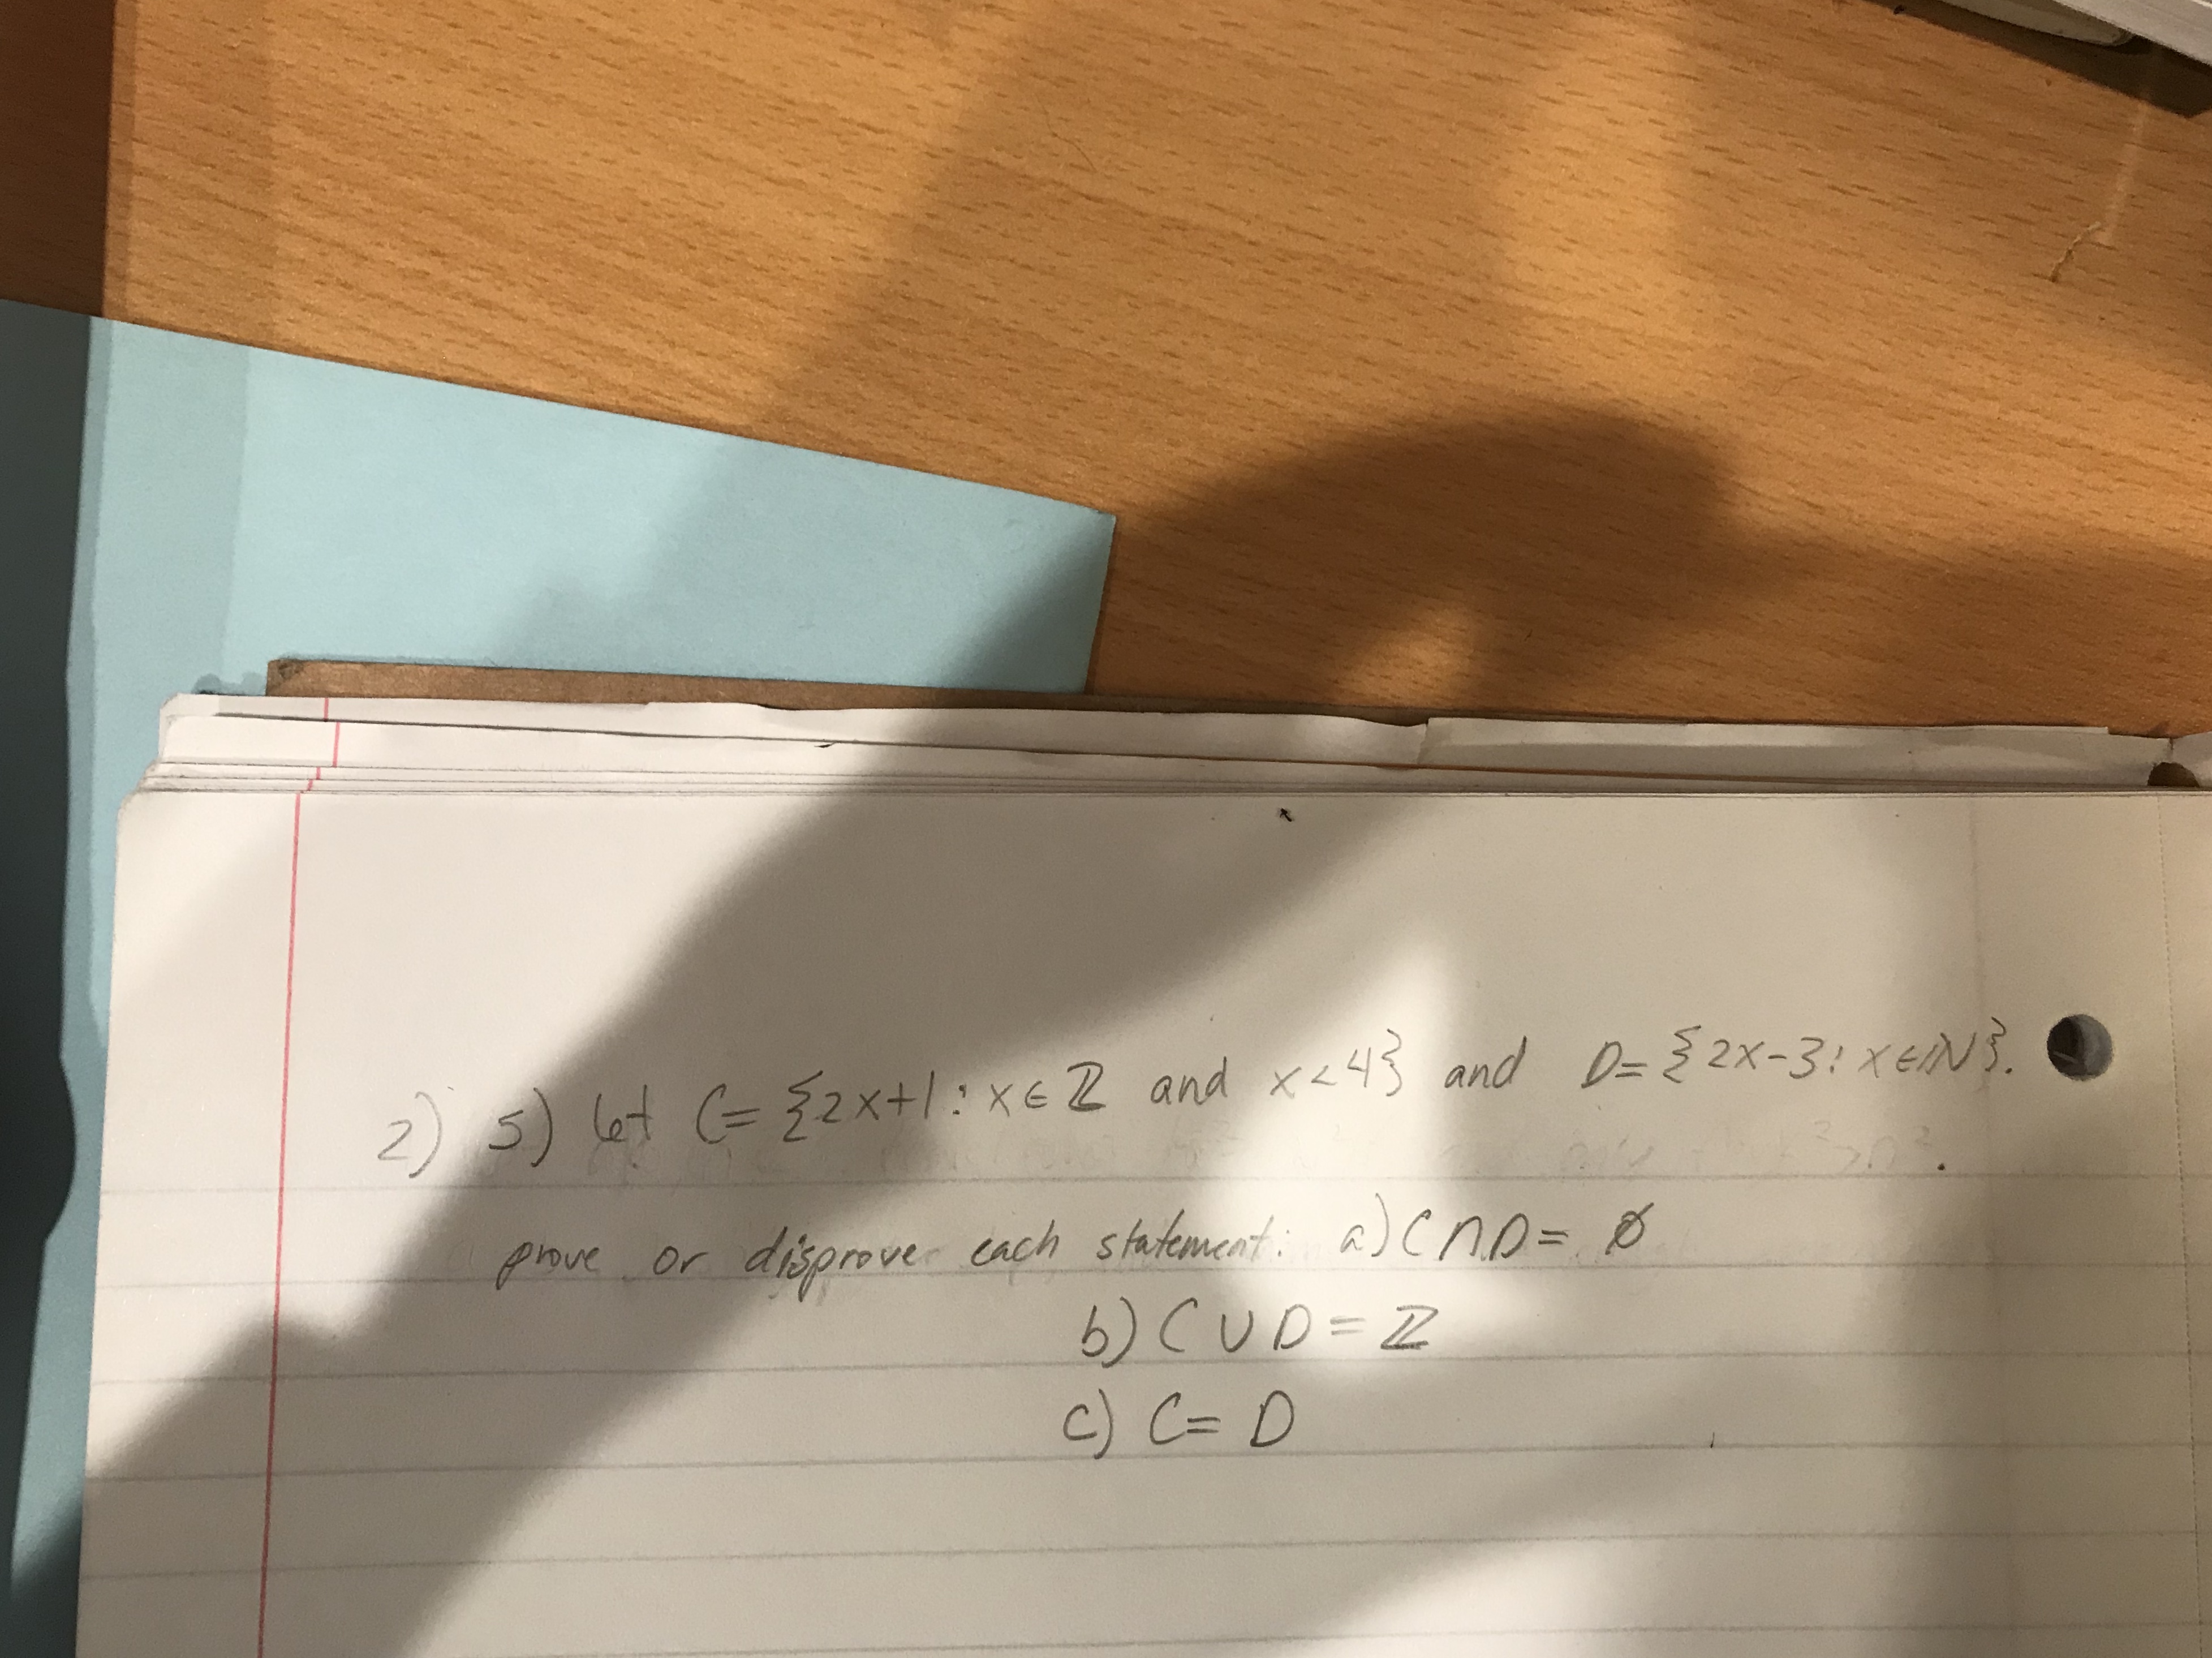 2) 5) Let C = {2x+1 : x ∈ ℤ and x < 4} and D = {2x-3 : x ∈ ℕ}.
prove or disprove each statement: a) C ∩ D = ∅
b) C ∪ D = ℤ
c) C = D